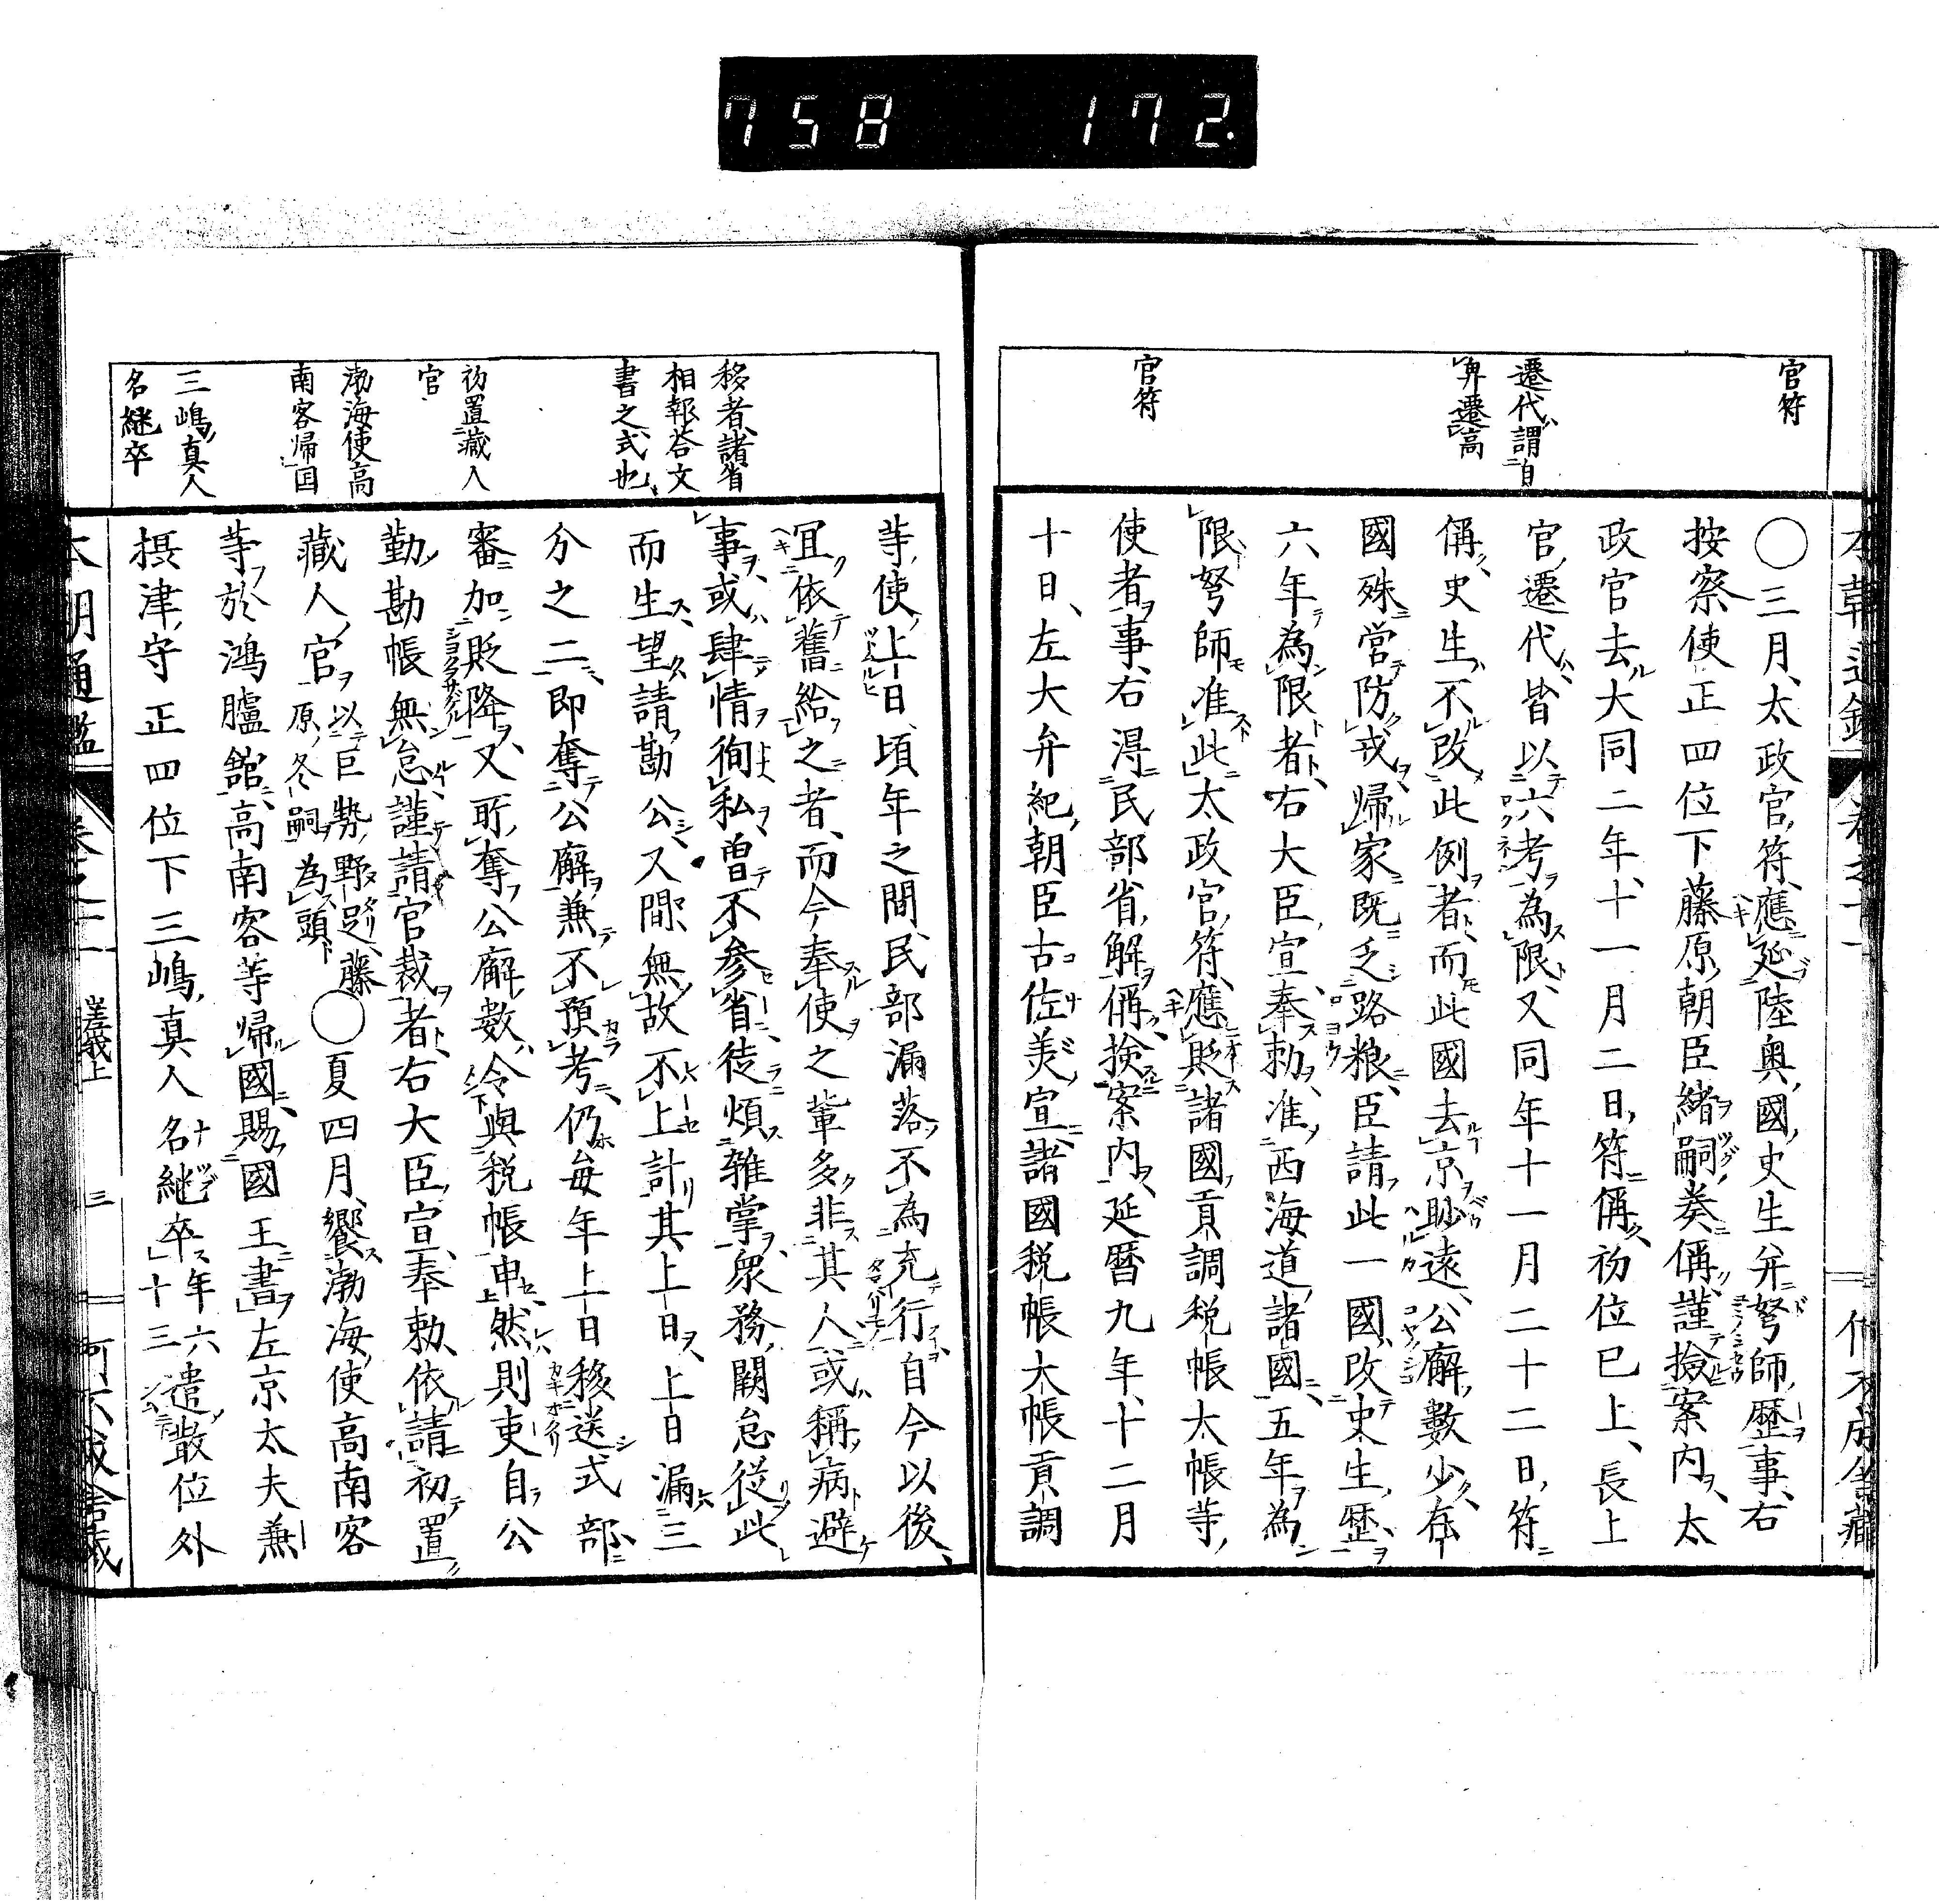 758 172.
官符
遷代謂自
卑遷高
官符
〇三月、太政官符、應延陸奥國史生弁弩師歴事、右
按察使正四位下藤原朝臣緒嗣奏偁、謹撿案内、太
政官去大同二年、十一月二日符偁、初位已上、長上
官遷代皆以六考為限、又同年十一月二十二日、符
偁、史生不改此例者、而此國去京眇遠、公廨數少、存
國殊営防戎、帰家既乏路粮、臣請此一國、改史生歴
六年為限者、右大臣宣、奉勅、准西海道諸國、五年為
限弩師准此、太政官符、應貶諸國貢調税帳大帳等、
使者事、右得民部省解偁、撿案内、延暦九年、十二月
十日、左大弁紀朝臣古佐美宣、諸國税帳大帳貢調
移者、諸省
相報荅文
書之式也
初置蔵人
官
渤海使高
南客帰国
三嶋真人
名継卒
等使上日、頃年之間、民部漏落不為充行、自今以後、
宜依舊給之者、而今奉使之輩多非其人、或稱病避
事、或肆情徇私、曽不参省、徒煩雑掌、衆務闕怠、従此
而生、望請勘公文間、無故不上、計其上日、上日漏三
分之二、即奪公廨、兼不預考、仍毎年上日移送式部
審加貶降、又所奪公廨數、令與税帳申上、然則吏自公
勤勘帳無怠、謹請官裁者、右大臣宣、奉勅、依請、初置
蔵人官、以巨勢野足、藤
原冬嗣為頭
〇夏四月、饗渤海使高南客
等於鴻臚舘、高南客等帰國、賜國王書、左京太夫兼
摂津守正四位下三嶋真人名継卒、年六
十三
遣散位外
本朝通鑑 巻之 嵯峨上 三